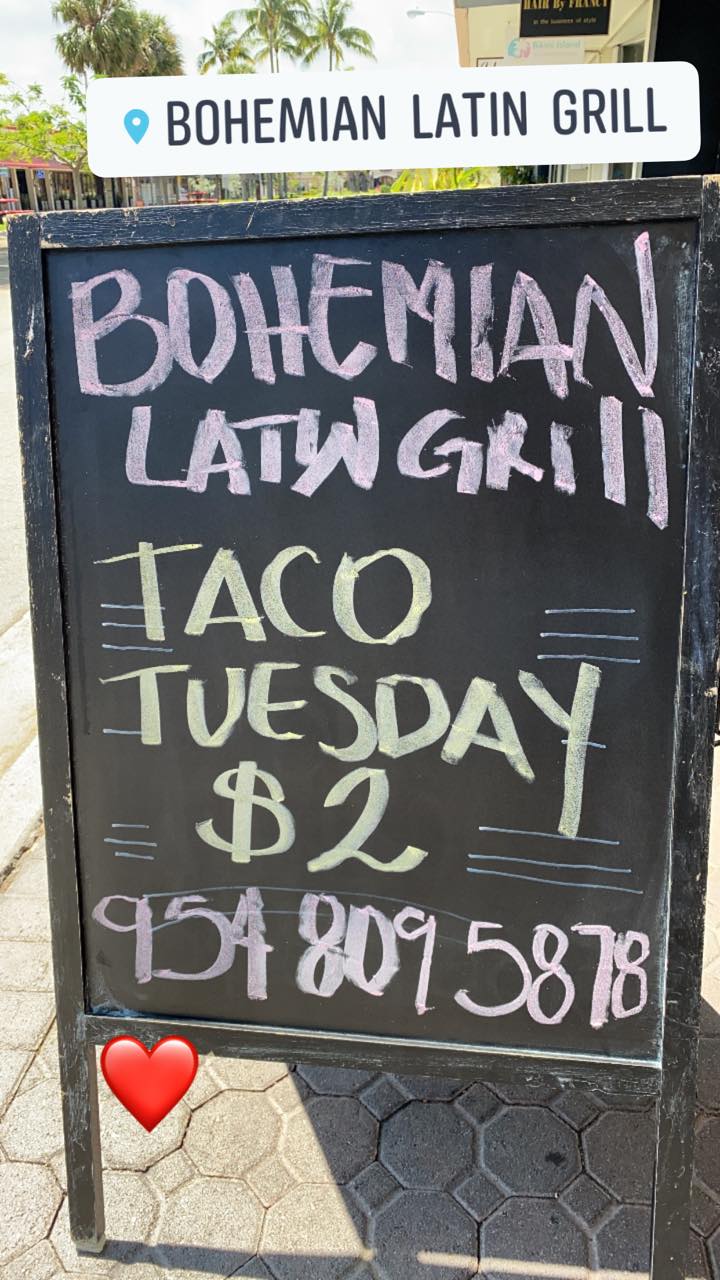 HAIR By FRANCY
in the business of style
BOHEMIAN LATIN GRILL
BOHEMIAN
LATIN GRIll
TACO
TUESDAY
$2
954 809 5878